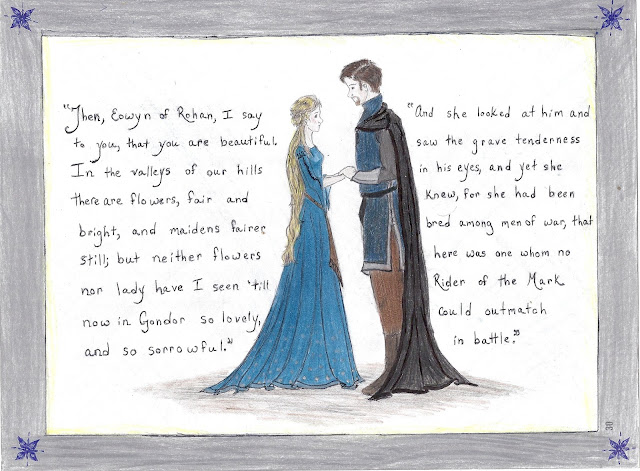 "Then, Eowyn of Rohan, I say
to you, that you are beautiful.
In the valleys of our hills
there are flowers, fair and
bright, and maidens fairer
still; but neither flowers
nor lady have I seen 'till
now in Gondor so lovely,
and so sorrowful."
"And she looked at him and
saw the grave tenderness
in his eyes, and yet she
knew, for she had been
bred among men of war, that
here was one whom no
Rider of the Mark
could outmatch
in battle."